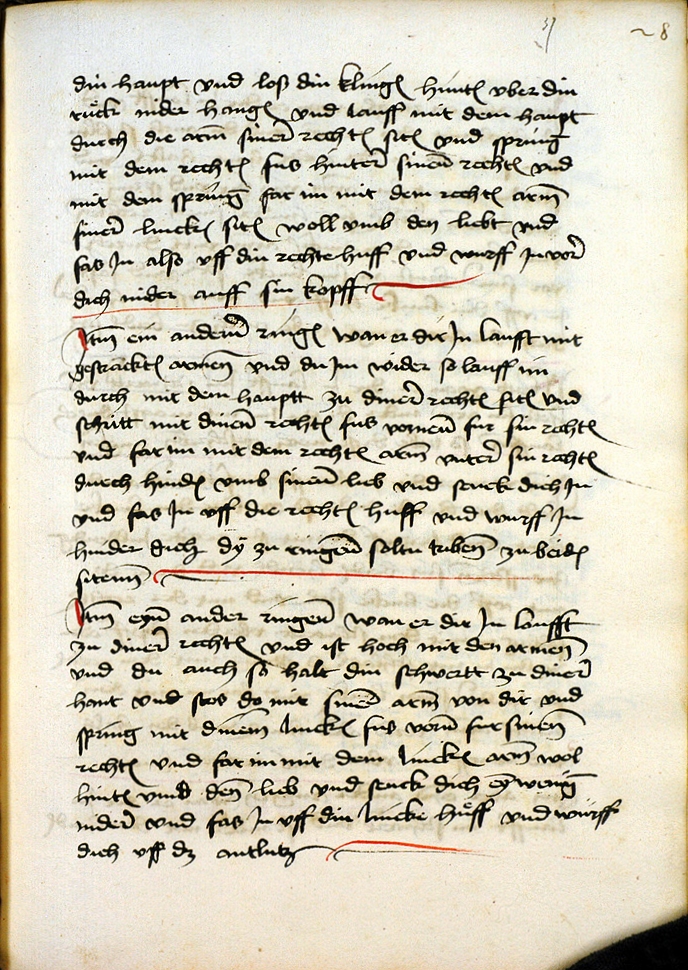 8
din haupt vnd loß din klinge hinte vber din
ruck nider hange vnd lauff mit dem haupt
durch die arm siner rechte site vnd spring
mit dem rechte fus hinter sinen rechte vnd
mit dem spring far im mit dem rechte arm
siner lincke site woll vmb den liebt vnd
fas In also vff din rechte huff vnd wurff In vor
dich nider auff sin kopff
Itm ein andern ringe wan er dir In laufft mit
gestrackte armen vnd du Im wider so lauff im
durch mit dem hauptt zu diner rechte site vnd
schritt mit dinen rechte fus vornen fur sin rechte
vnd far im mit dem rechte arm vnter sin rechte
durch hinde vmb sinen lieb vnd sencke dich In
vnd fas In vff die rechte huff vnd wurff In
hinder dich dÿ zu ringen soltu triben zu beide
sitenn
Itm eyn ander ringen wan er dir In laufft
zu diner rechte vnd ist hoch mit den armen
vnd du auch so halt din schwertt zu diner
hant vnd stos do mit sinen arm von dir vnd
spring mit dinem lincke fus vorn fur sinen
rechte vnd far im mit dem lincke arm wol
hinte vmb den lieb vnd senck dich ey wenig
nider vnd fas In vff din lincke huff vnd wurff
dich vff dz antlutz